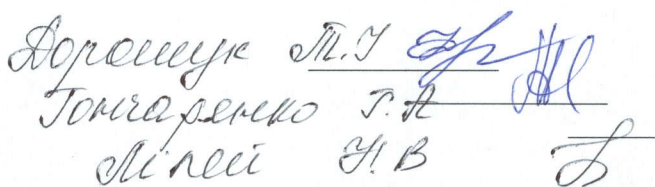 Дорощук Т.І
Гончаренко Г.А
Лілей Н.В